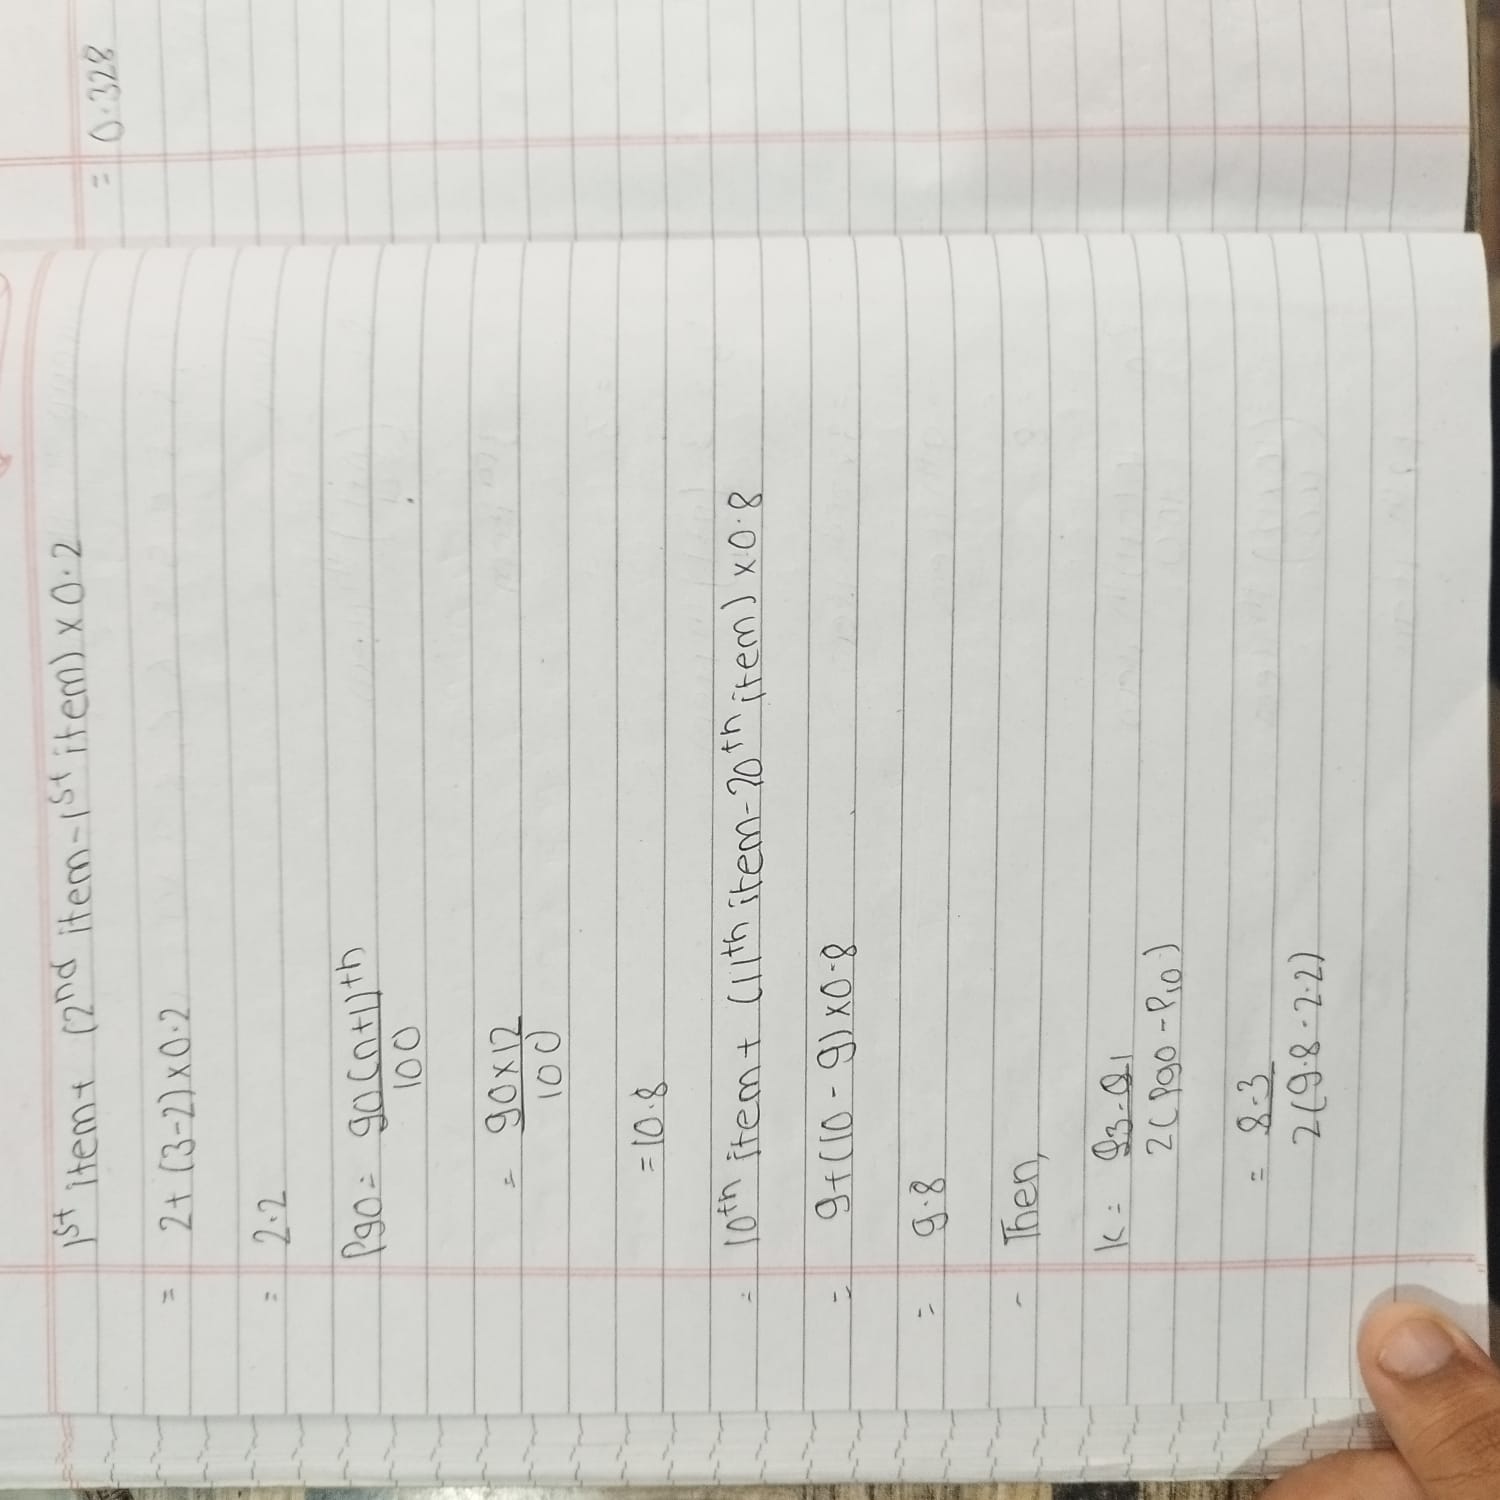 1st item + (2nd item - 1st item) × 0.2
= 2 + (3-2) × 0.2
= 2.2
P90 = 90(n+1)th
100
= 90×12
100
= 10.8
= 10th item + (11th item - 20th item) × 0.8
= 9+(10 - 9) × 0.8
= 9.8
- Then,
K = Q3 - Q1
2(P90 - P10)
= 8-3
2(9.8 - 2.2)
= 0.328